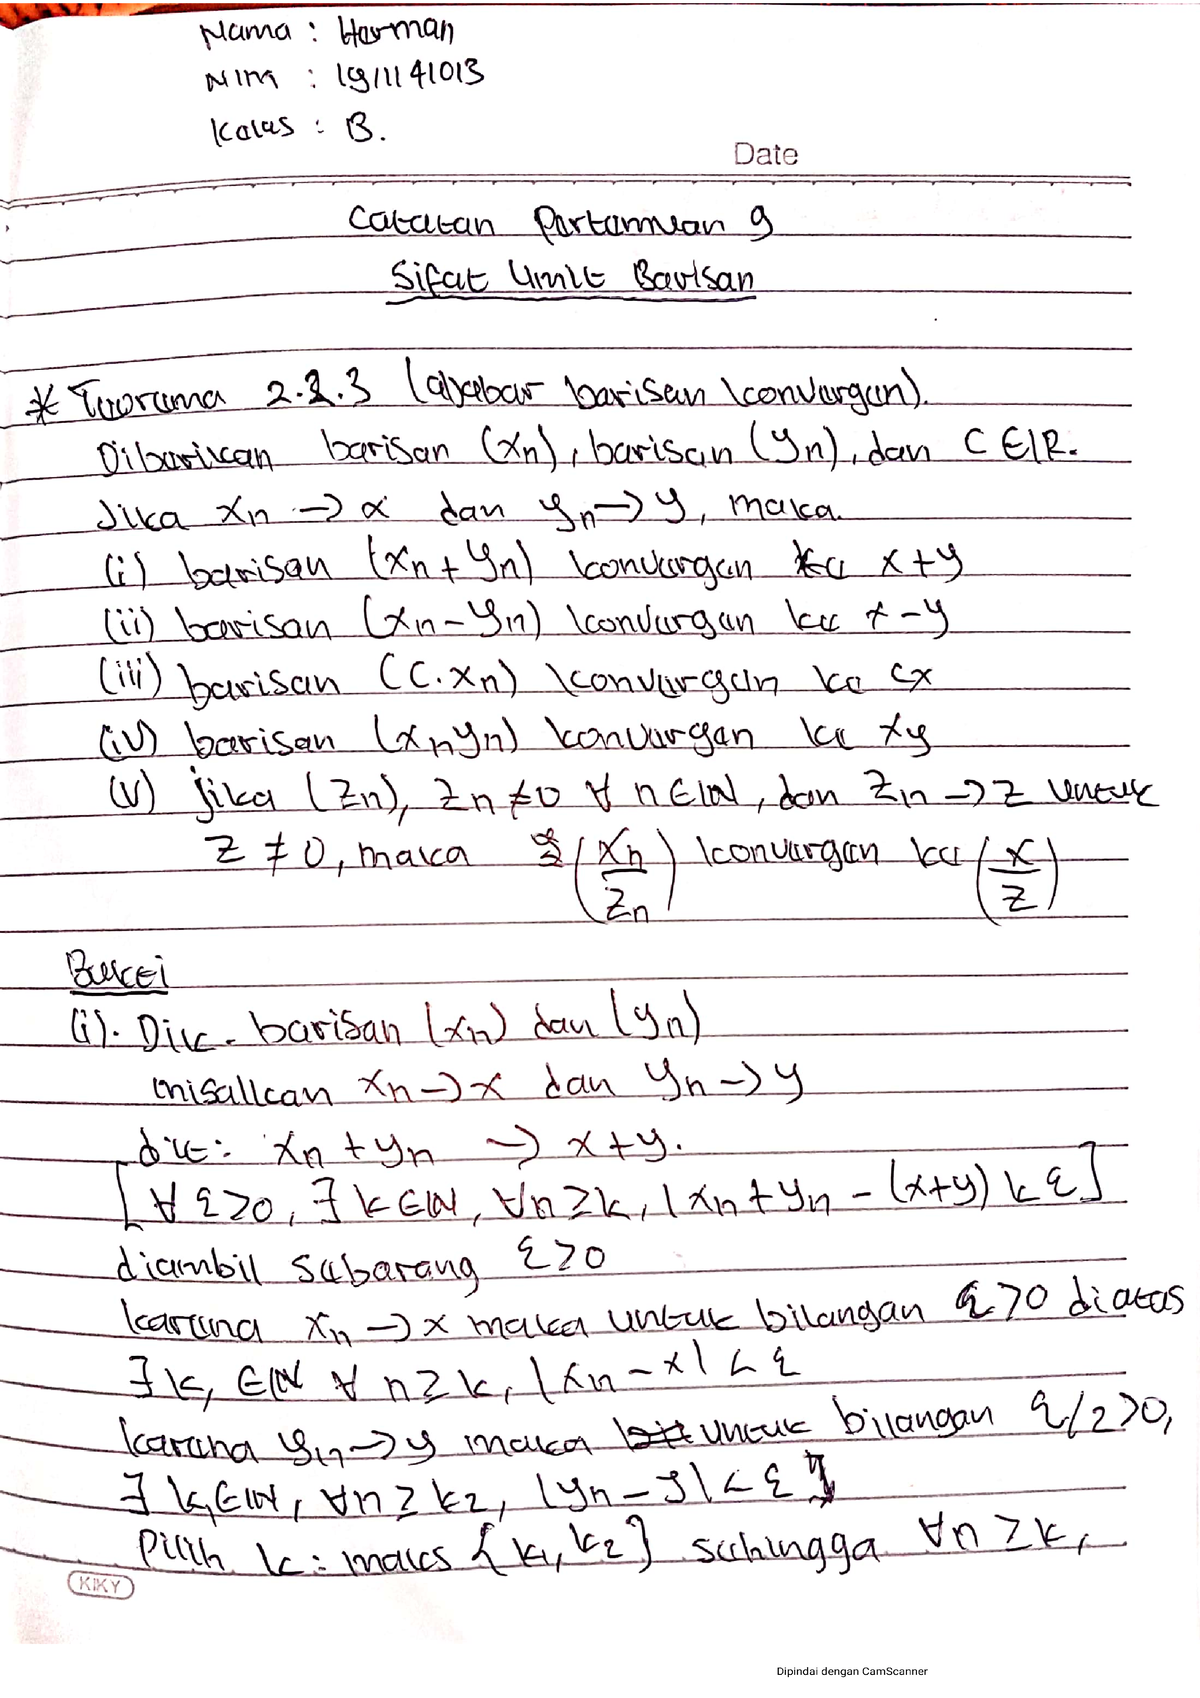 Nama : Herman
NIM : 1911141013
Kelas : B.
Date
Catatan Pertemuan 9
Sifat Limit Barisan
* Teorema 2.2.3 (aljabar barisan konvergen).
Diberikan barisan (xn), barisan (yn), dan C ∈ IR.
Jika xn → x dan yn → y, maka.
(i) barisan (xn + yn) konvergen ke x+y
(ii) barisan (xn - yn) konvergen ke x-y
(iii) barisan (C.xn) konvergen ke cx
(iv) barisan (xnyn) konvergen ke xy
(v) jika (Zn), Zn ≠ 0 ∀ n ∈ IN, dan Zn → Z untuk
Z ≠ 0, maka (xn/Zn) konvergen ke (x/Z)
Bukti
(i). Dik. barisan (xn) dan (yn)
misalkan xn → x dan yn → y
dit: xn + yn → x+y.
[∀ ε>0, ∃ k ∈ IN, ∀n ≥ k, |xn + yn - (x+y)| < ε]
diambil sebarang ε>0
karena xn → x maka untuk bilangan ε>0 diatas
∃ k, ∈ IN ∀ n ≥ k, |xn - x| < ε
karena yn → y maka untuk bilangan ε/2>0,
∃ k, ∈ IN, ∀n ≥ k2, |yn - y| < ε
Pilih k = maks {k1, k2} sehingga ∀n ≥ k,
KIKY
Dipindai dengan CamScanner